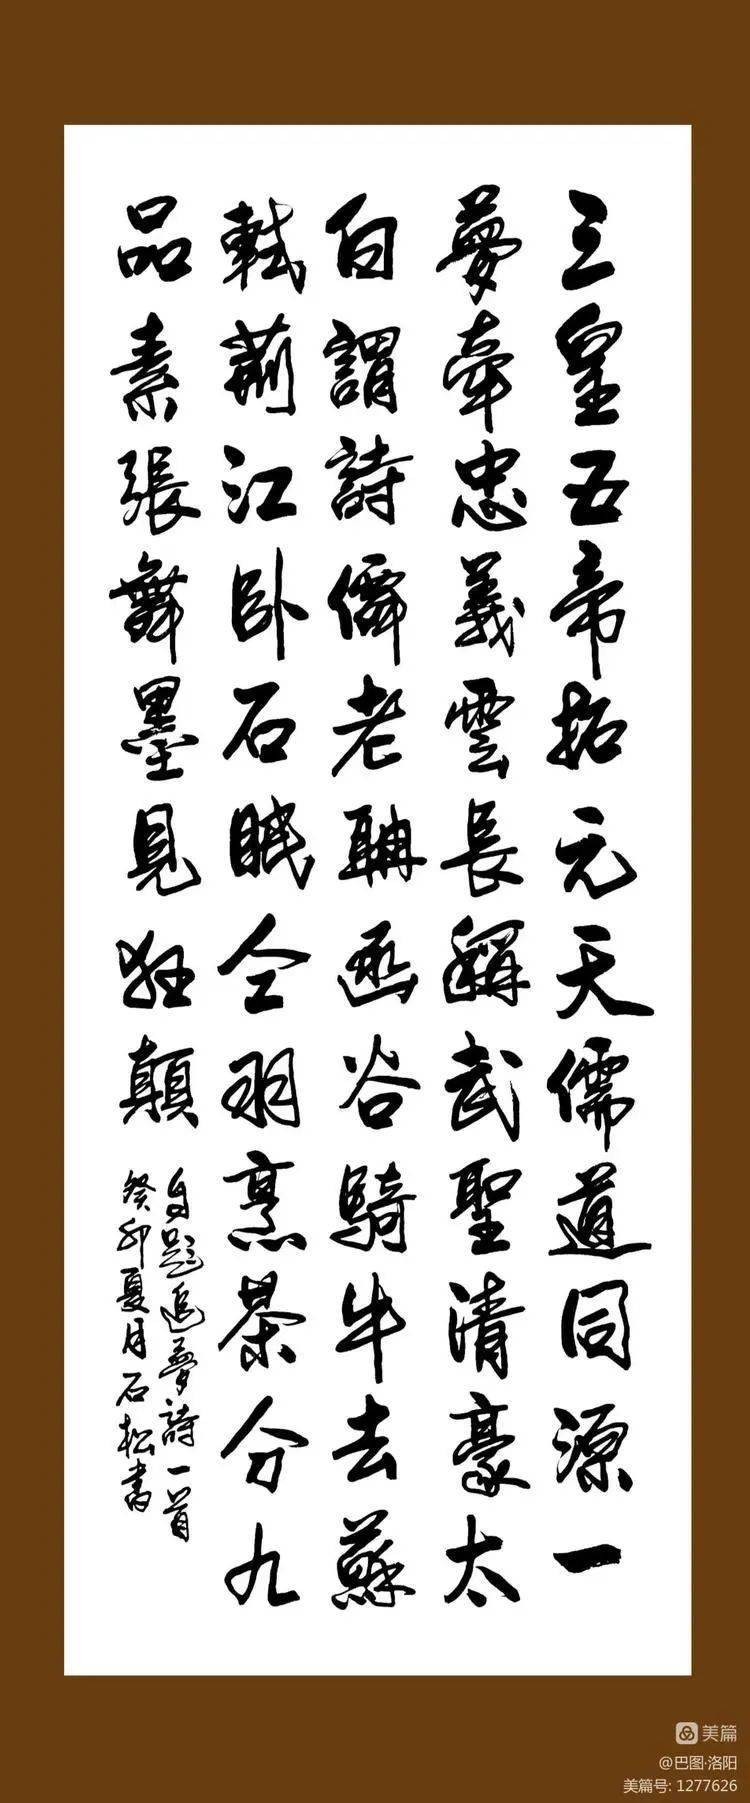 三皇五帝拓元天儒道同源一
夢牽忠義雲長稱武聖清豪太
白謂詩僊老聃函谷騎牛去蘇
軾荊江卧石眠仝羽烹茶分九
品素張舞墨見狂顛
自題追夢詩一首
癸卯夏月石松書
美篇
@巴图·洛阳
美篇号: 1277626